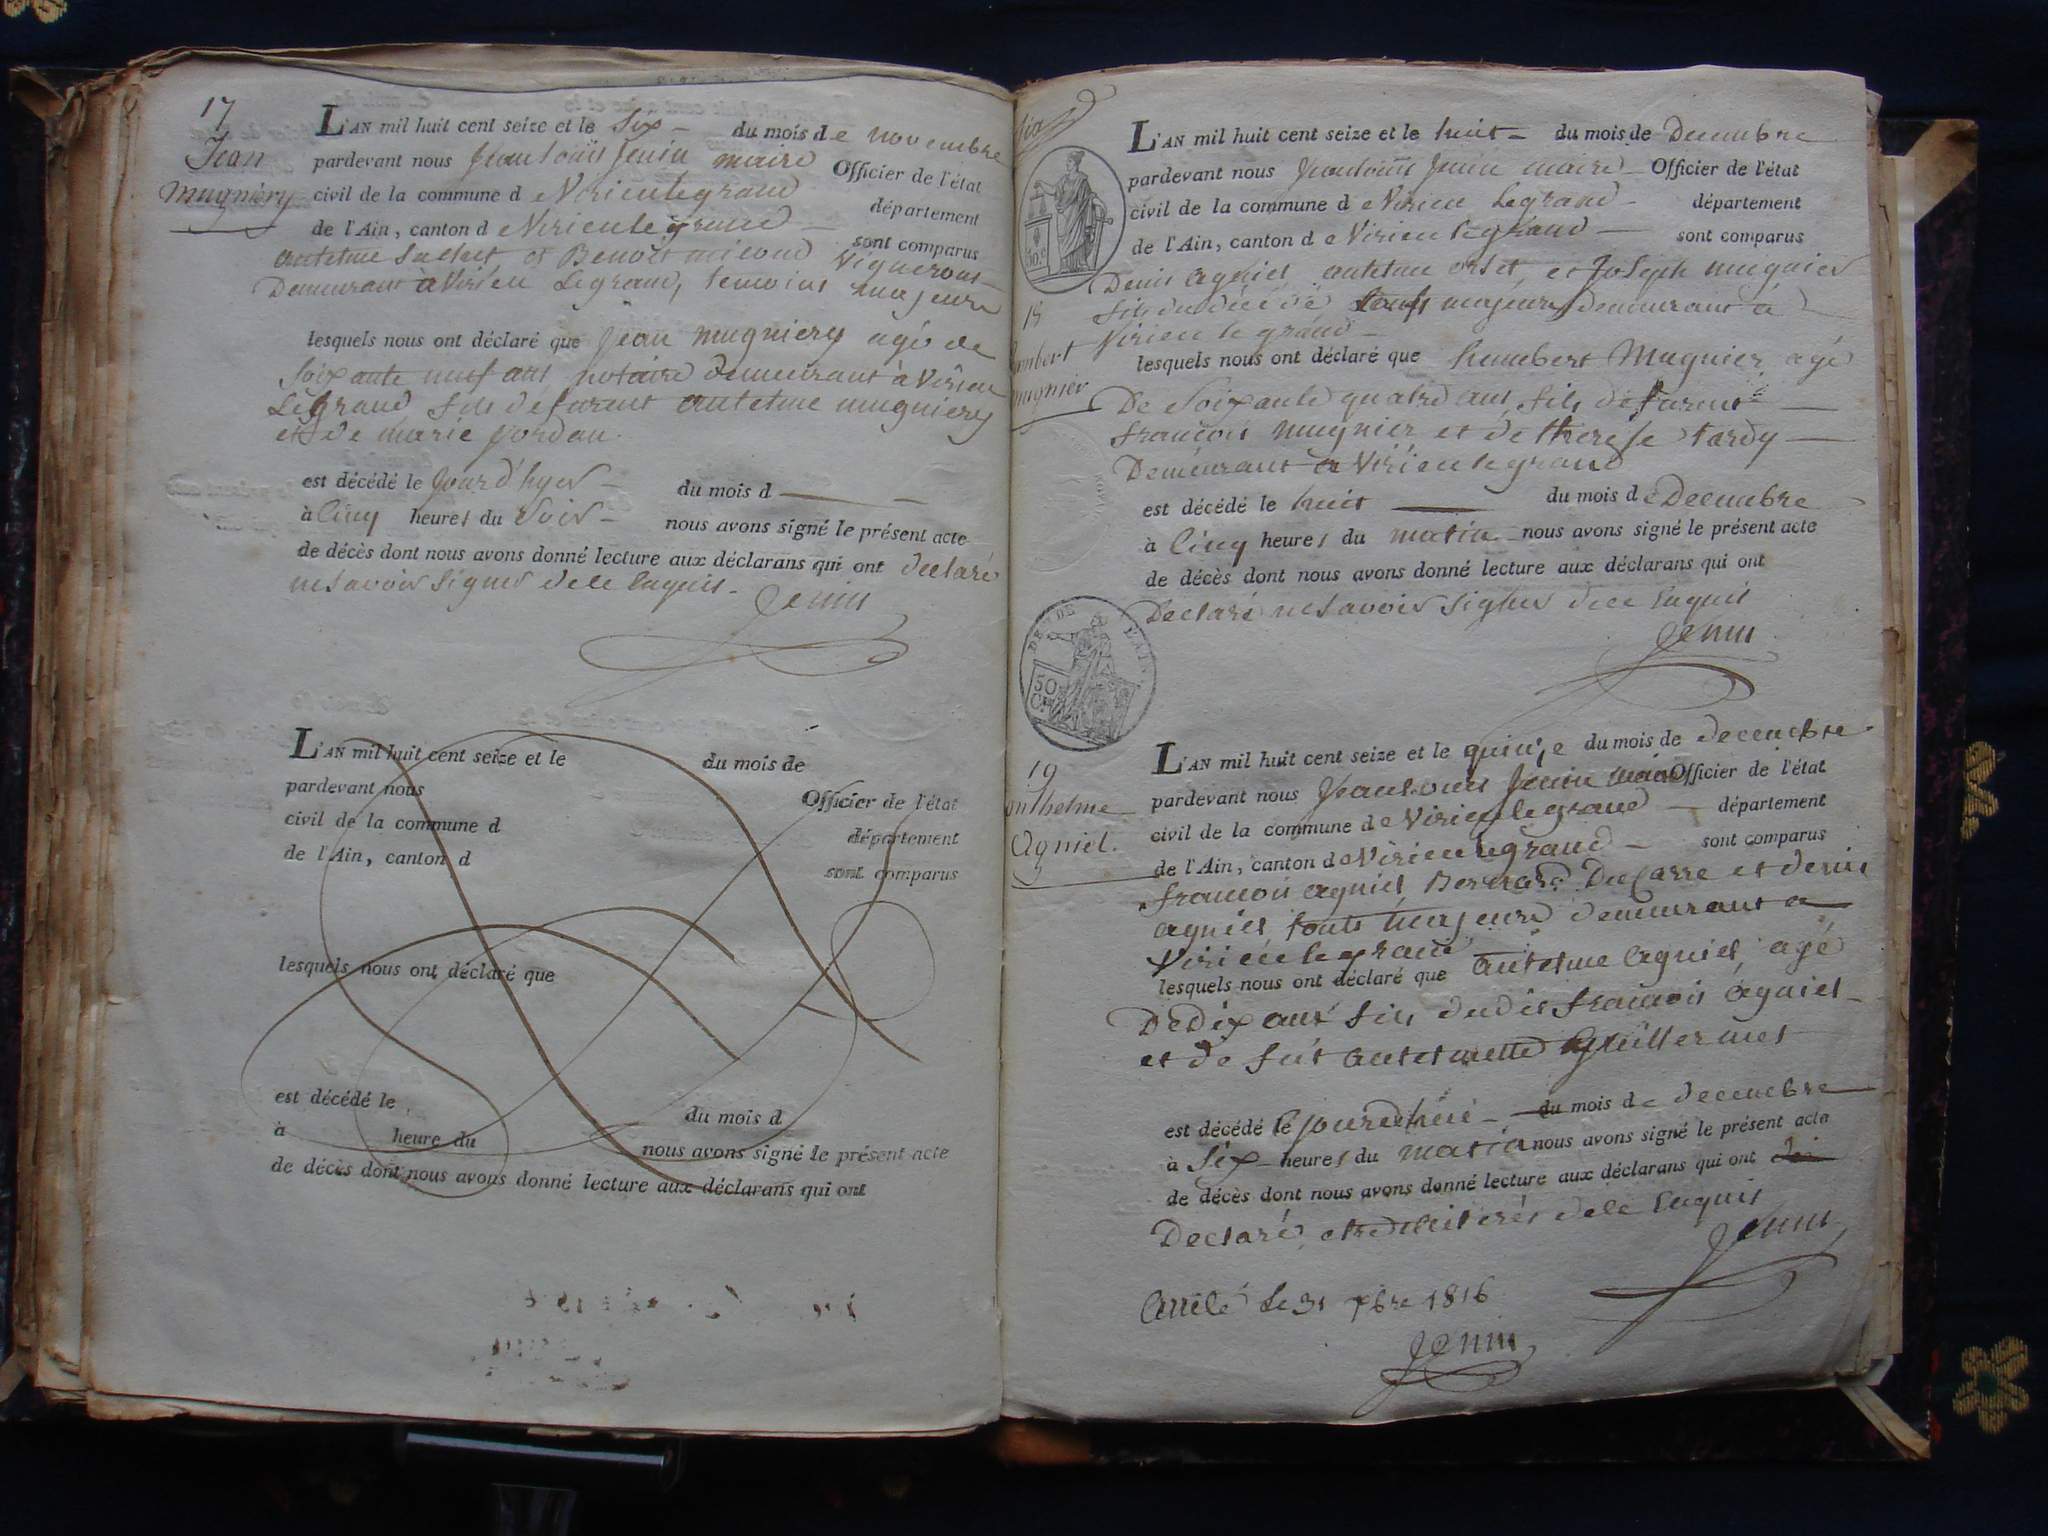 17
Jean
Mugniery
L'AN mil huit cent seize et le Six du mois de novembre
pardevant nous Jeanlouis Jenin maire Officier de l'état
civil de la commune d e Virieulegrand département
de l'Ain, canton d e Virieulegrand sont comparus
antelme et Benoit micoud Vignerons
Demeurant à Virieu Legrand, temoins majeurs
lesquels nous ont déclaré que Jean mugniery agé de
Soixante neuf ans notaire demeurant à Virieu
Legrand fils de furent antelme mugniery
et de marie jordan.
est décédé le jour d'hyer du mois d
à Cinq heures du Soir nous avons signé le présent acte
de décès dont nous avons donné lecture aux déclarans qui ont declaré
ne Savoir Signer de ce Enquis.
Jenin
L'AN mil huit cent seize et le du mois de
pardevant nous Officier de l'état
civil de la commune d département
de l'Ain, canton d sont comparus
lesquels nous ont déclaré que
est décédé le du mois d
à heure du nous avons signé le présent acte
de décès dont nous avons donné lecture aux déclarans qui ont
18
umbert
mugnier
L'AN mil huit cent seize et le huit du mois de Decembre
pardevant nous Jeanlouis Jenin maire Officier de l'état
civil de la commune d e Virieu Legrand département
de l'Ain, canton d e Virieu legrand sont comparus
Denis agniel antelme orset et Joseph mugnier
fils du décédé touts majeurs demeurant à
Virieu le grand
lesquels nous ont déclaré que humbert Mugnier agé
De Soixante quatre ans fils de furent
françois mugnier et de therese tardy
Demeurant a Virieu le grand
est décédé le huit du mois d e Decembre
à Cinq heures du matin nous avons signé le présent acte
de décès dont nous avons donné lecture aux déclarans qui ont
Declaré ne Savoir Signer de ce Enquis
Jenin
50
19
nthelme
Agniel.
L'AN mil huit cent seize et le quinze du mois de decembre
pardevant nous Jeanlouis Jenin maire Officier de l'état
civil de la commune d e Virieulegrand département
de l'Ain, canton d e Virieulegrand sont comparus
francois agniel Bernard et denis
agniel touts majeurs demeurant a
Virieu le grand
lesquels nous ont déclaré que antelme agniel agé
De dix ans fils dudit francois agniel
et de fut antelmette Guillermet
est décédé le jourdhui du mois d e decembre
à Six heures du matin nous avons signé le présent acte
de décès dont nous avons donné lecture aux déclarans qui ont
Declaré etre illiterés de ce Enquis
Jenin
Arreté le 31 xbre 1816
Jenin